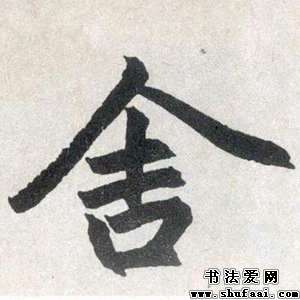 舍
书法爱网
www.shufaai.com